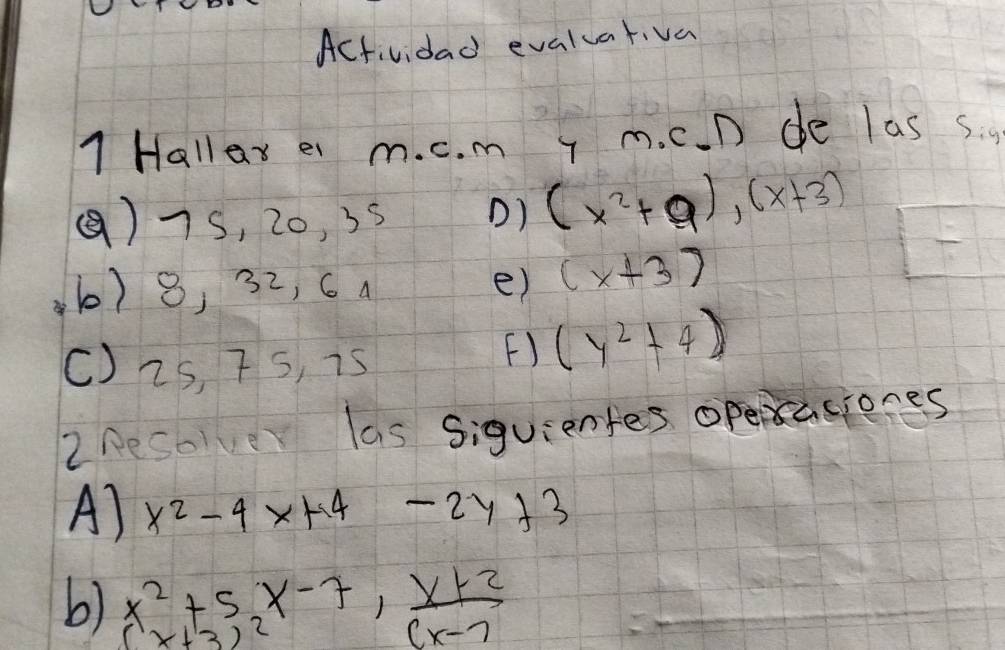 Actividad evaluativa
1 Hallar el m.c.m y m.c.D de las
a) 15, 20, 35 D) (x²+9), (x+3)
b) 8, 32, 64 e) (x+3)
C) 25, 75, 15 F) (y²+4)
2 Resolver las siguientes operaciones
A) x²-4x+4 -2y+3
b) x²+5x-7, x+2
(x+3)² (x-